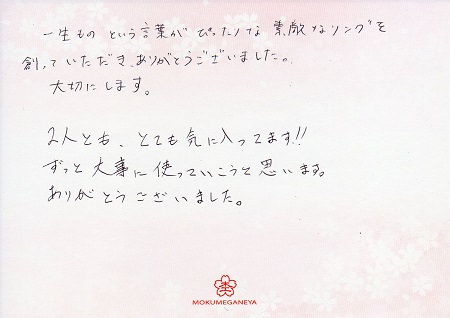 一生もの という言葉が ぴったりな 素敵なリングを
創っていただき、ありがとうございました。
大切にします。
2人とも、とても気に入ってます!!
ずっと大事に使っていこうと思います。
ありがとうございました。
MOKUMEGANEYA